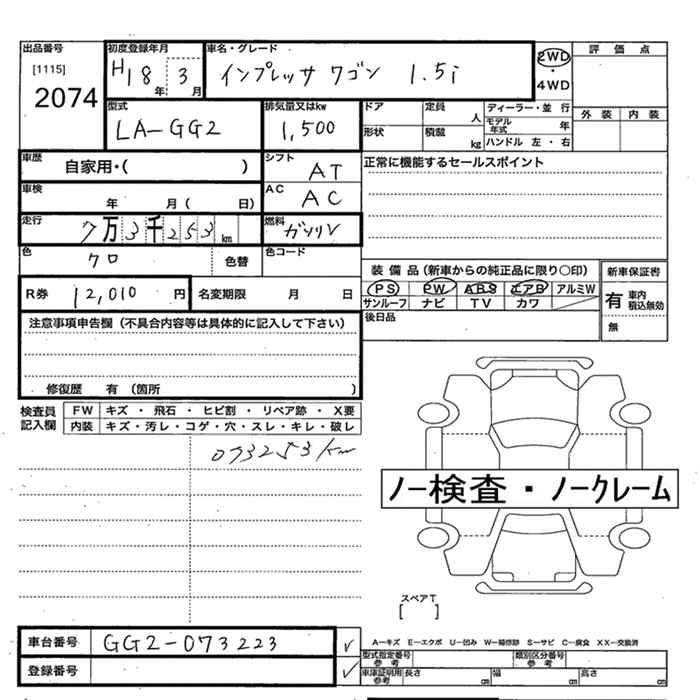 出品番号 初度登録年月 車名・グレード 評価点
[1115]
2074
H18年 3月 インプレッサ ワゴン 1.5i 2WD・4WD
型式 排気量又はkw ドア 定員 人 ディーラー・並行 外装 内装
LA-GG2 1,500 形状 積載 kg モデル年式 年
ハンドル 左・右
車歴 自家用・( ) シフト AT 正常に機能するセールスポイント
車検 年 月( 日) AC AC
走行 7万3千253km 燃料 ガソリン
色 クロ 色替 色コード
装備品(新車からの純正品に限り○印) 新車保証書
R券 12,010円 名変期限 月 日 PS PW ABS エアB アルミW 有 車内 積込無効
サンルーフ ナビ TV カワ
注意事項申告欄(不具合内容等は具体的に記入して下さい) 後日品 無
修復歴 有(箇所 )
検査員記入欄 FW キズ・飛石・ヒビ割・リペア跡・X要
内装 キズ・汚レ・コゲ・穴・スレ・キレ・破レ
073253km
ノー検査・ノークレーム
スペアT
[ ]
車台番号 GG2-073223 ✓ A-キズ E-エクボ U-凹み W-補修跡 S-サビ C-腐食 XX-交換済
登録番号 ✓ 型式指定番号 参考 類別区分番号 参考
車庫証明用 参考 長さ cm 幅 cm 高さ cm